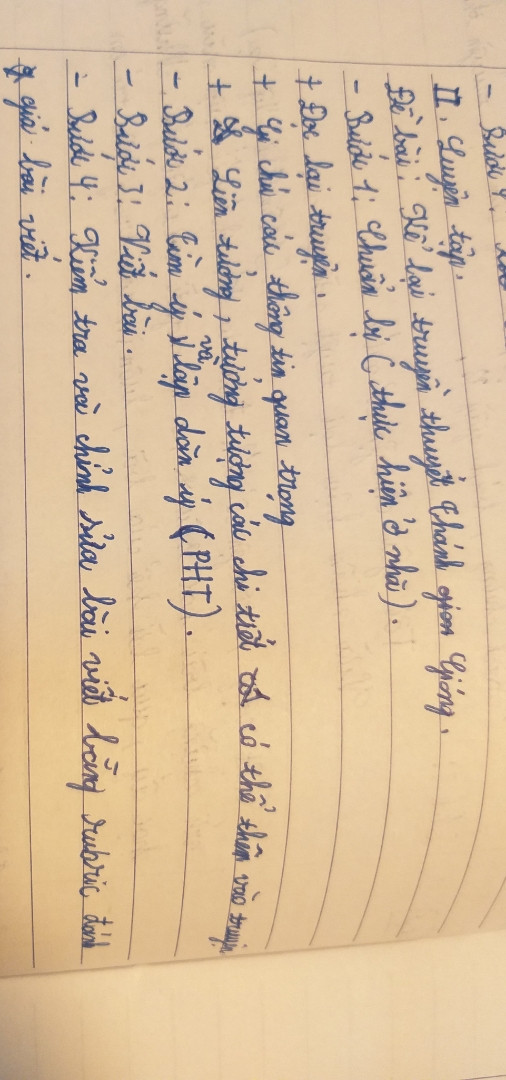 - Bước 4:
II, Luyện tập,
Đề bài: Kể lại truyền thuyết Thánh Gióng.
- Bước 1: Chuẩn bị (thực hiện ở nhà).
+ Đọc lại truyện.
+ Ghi chú các thông tin quan trọng
+ Liên tưởng, tưởng tượng các chi tiết có thể thêm vào truyện
- Bước 2: Tìm ý và lập dàn ý (PHT).
- Bước 3: Viết bài.
- Bước 4: Kiểm tra và chỉnh sửa bài viết bằng rubric đánh
giá bài viết.